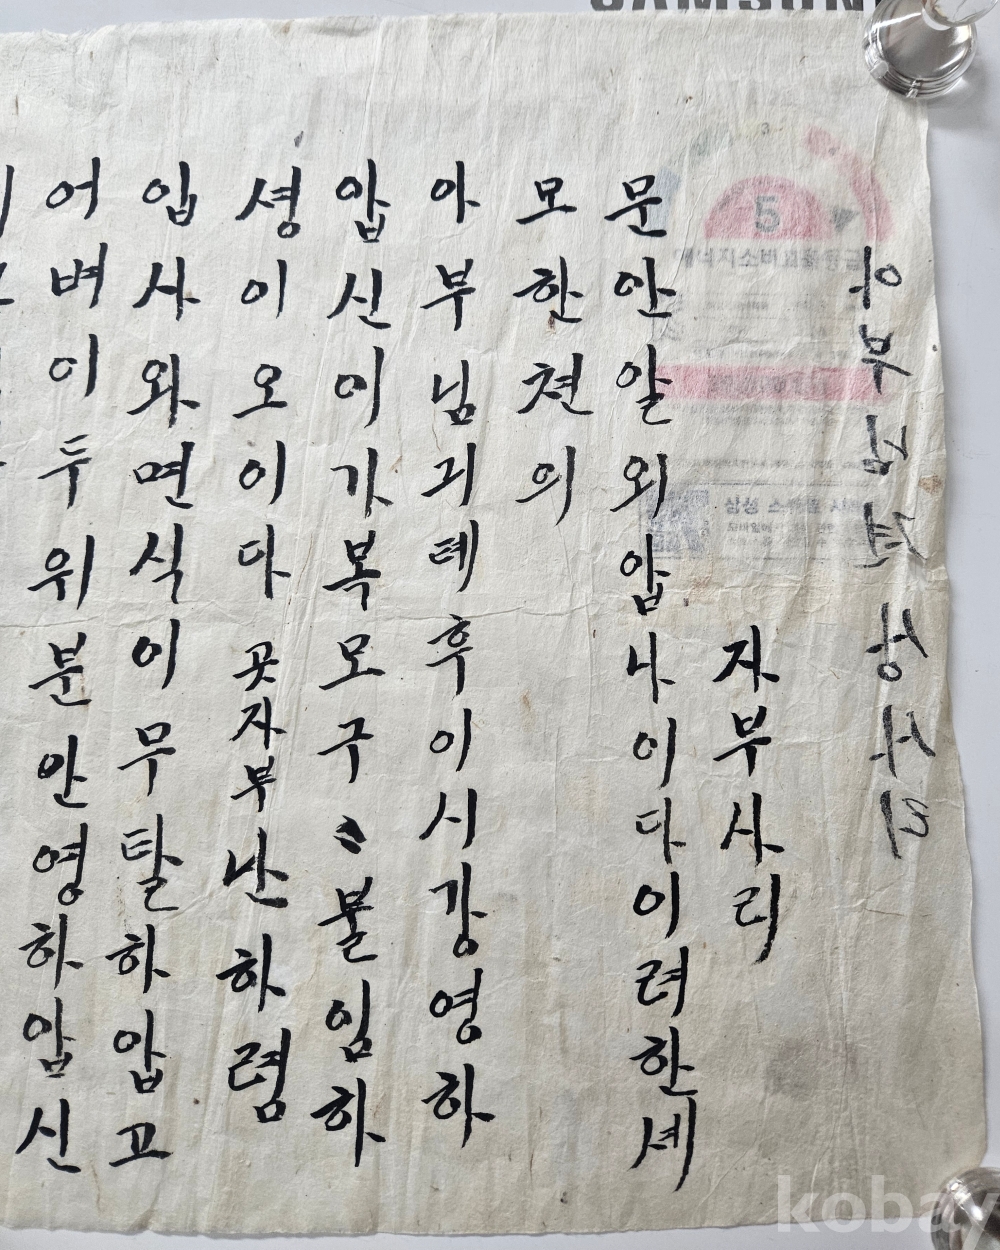 아부님젼상사리
자부사리
문안알외압나이다이려한셰
모한쳔의
아부님긔톄후이시강영하
압신이가복모구〻불임하
셩이오이다곳자부난하렴
입사와면식이무탈하압고
어벼이두위분안영하압신
SAMSUN
5
kobay